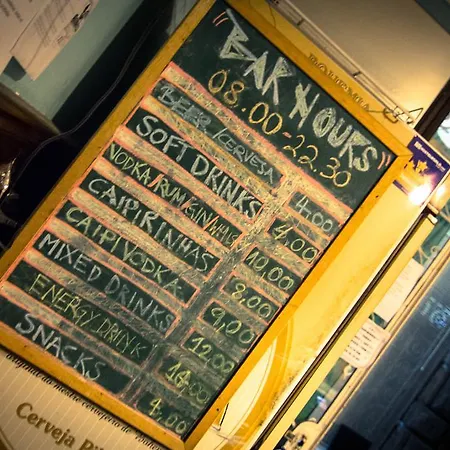 BOHEMIA
"BAR N OURS"
08.00-22.30
BEER/CERVESA 4,00
SOFT DRINKS 4,00
VODKA/RUM/GIN/ 10,00
CAIPIRINHAS 8,00
CAIPIVODKA 9,00
MIXED DRINKS 12,00
ENERGY DRINK
SNACKS 4,00
Cerveja